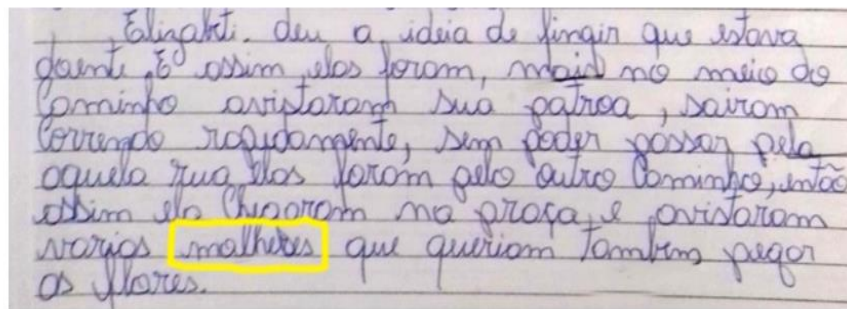 Elizabti. deu a ideia de fingir que estava
doente. E assim, elas foram, mais no meio do
Caminho avistaram sua patroa, sairam
Correndo rapidamente, sem poder passar pela
aquela rua elas foram pelo outro Caminho, então
assim ela Chegaram na praça, e avistaram
varias malheres que queriam também pegar
as flores.